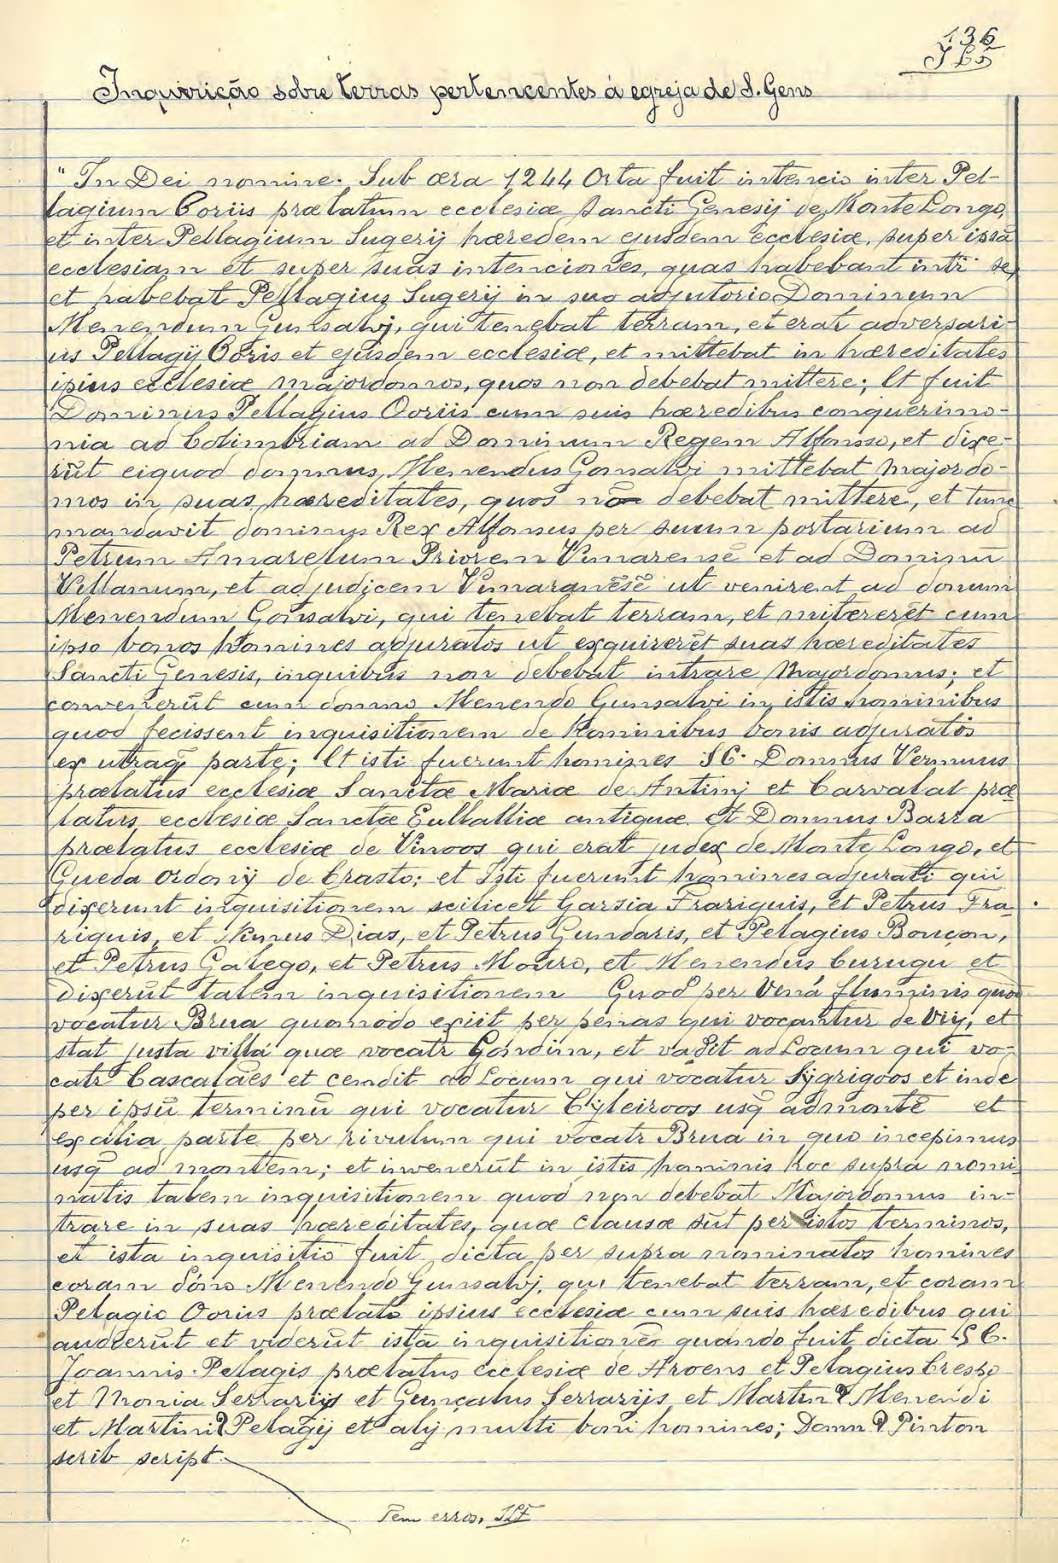 136
Inquirição sobre terras pertencentes á egreja de S. Gens
" In Dei nomine. Sub æra 1244 Orta fuit intencio inter Pel-
lagium Coriis prælatum ecclesiæ Sancti Genesij de Monte Longo,
et inter Pellagium Sugerij hæredem ejusdem ecclesiæ, super ipsã
ecclesiam et super suas intenciones, quas habebant intr se,
et habebat Pellagius Sugerij in suo adjutorio Dominum
Menendum Gunsalvj, qui tenebat terram, et erat adversari-
us Pellagij Ooris et ejusdem ecclesiæ, et mittebat in hæreditates
ipius ecclesiæ majordomos, quos non debebat mittere; Et fuit
Dominus Pellagius Ooriis cum suis hæredibus conquerimo-
nia ad Colimbriam ad Dominum Regem Alfonso, et dixe-
rũt ei quod domnus, Menendus Gonsalvi mittebat majordo-
mos in suas hæreditates, quos nõ debebat mittere, et tunc
mandavit dominus Rex Alfonsus per suum portarium ad
Petrum Amarelum Priorem Vimarensẽ et ad Dominũ
Villanum, et ad judicem Vimaranẽsẽ ut venirent ad donum
Menendum Gonsalvi, qui tenebat terram, et mitererẽt cum
ipso bonos homines adjuratos ut exquirerẽt suas hæreditates
Sancti Genesis, inquibus non debebat intrare Majordomus; et
convenerũt cum domno Menendo Gunsalvi in istis hominibus
quod fecissent inquisitionem de hominibus bonis adjuratis
ex utraq̃ parte; Et isti fuerunt homines SC. Domnus Vermuus
prælatus ecclesiæ Sanctæ Mariæ de Antimj et Carvalal præ
latus ecclesiæ Sanctæ Eullalliæ antiquæ et Domnus Barra
prælatus ecclesiæ de Vinoos qui erat judex de Monte Longo, et
Gueda Ordonij de Crasto; et Isti fuerunt homines adjurati qui
dixerunt inquisitionem scilicet Garsia Frariquis, et Petrus Fra-
riquis, et Nunus Dias, et Petrus Gundaris, et Pelagius Bouçon,
et Petrus Galego, et Petrus Mouro, et Menendus Curugu et
dixerũt talem inquisitionem Quod per Vená fluminis quod
vocatur Brua quomodo exiit per penas qui vocantur de Viy, et
stat justa villã quæ vocatr Gondim, et vadit ad Locum qui vo-
catr Cascalães et cendit ad Locum qui vocatur Sygrigoos et inde
per ipsũ terminũ qui vocatur Cyleiroos usq̃ admontẽ et
ex alia parte per rivulum qui vocatr Brua in quo incepimus
usq̃ ad montem; et invenerũt in istis hominis hoc supra nomi
natis talem inquisitionem quod non debebat Majordomus in-
trare in suas hæreditates, quæ clausæ sũt per istos terminos,
et ista inquisitio fuit dicta per supra nominatos homines
coram dóno Menendo Gunsalvj, qui tenebat terram, et coram
Pelagio Oorius prælato ipsius ecclesiæ cum suis hæredibus qui
audierũt et viderũt istã inquisitionẽ quando fuit dicta SC.
Joannis Pelagis prælatus ecclesiæ de Aroens et Pelagius Crespo
et Monia Serrarijs et Gunçalus Serrarijs, et Martin Menendi
et Martini Pelagij et alij multi boni homines; Domn Pinton
scrib script.
Tem erros.